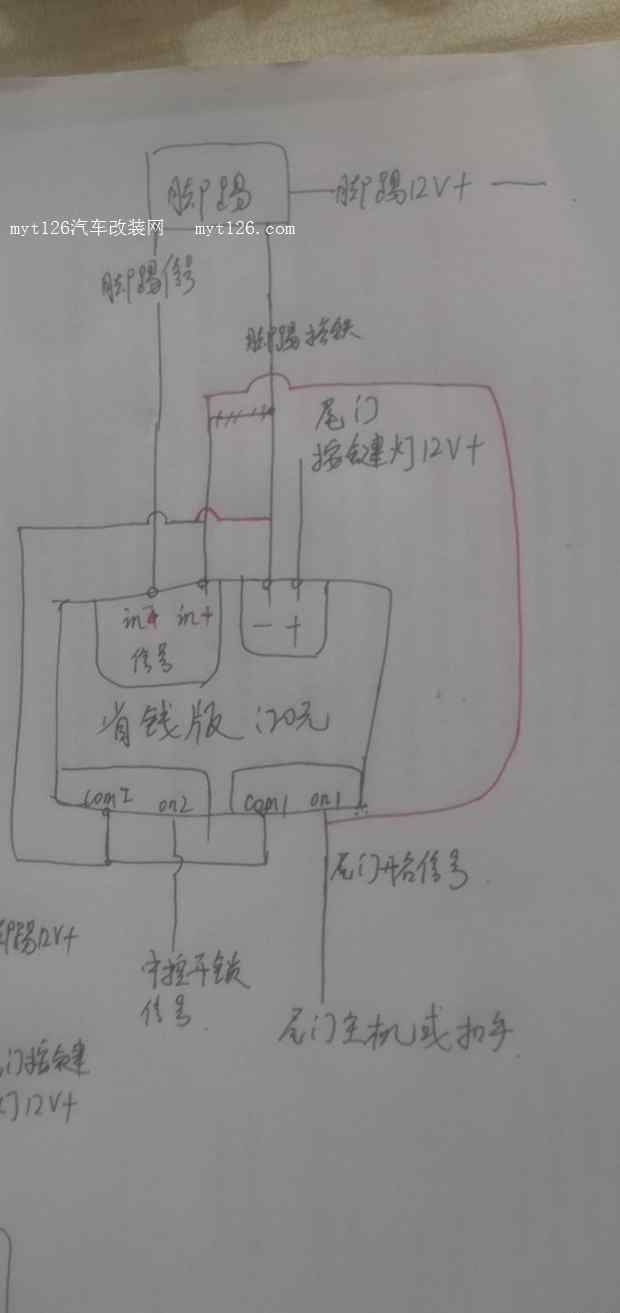 脚踢
脚踢12V+
myt126汽车改装网 myt126.com
脚踢信号
脚踢搭铁
尾门
按键灯12V+
in+ in+
信号
- +
省钱版 20元
com2 on2 com1 on1
尾门开启信号
脚踢12V+
中控开锁
信号
尾门主机或扣手
门按键
灯12V+